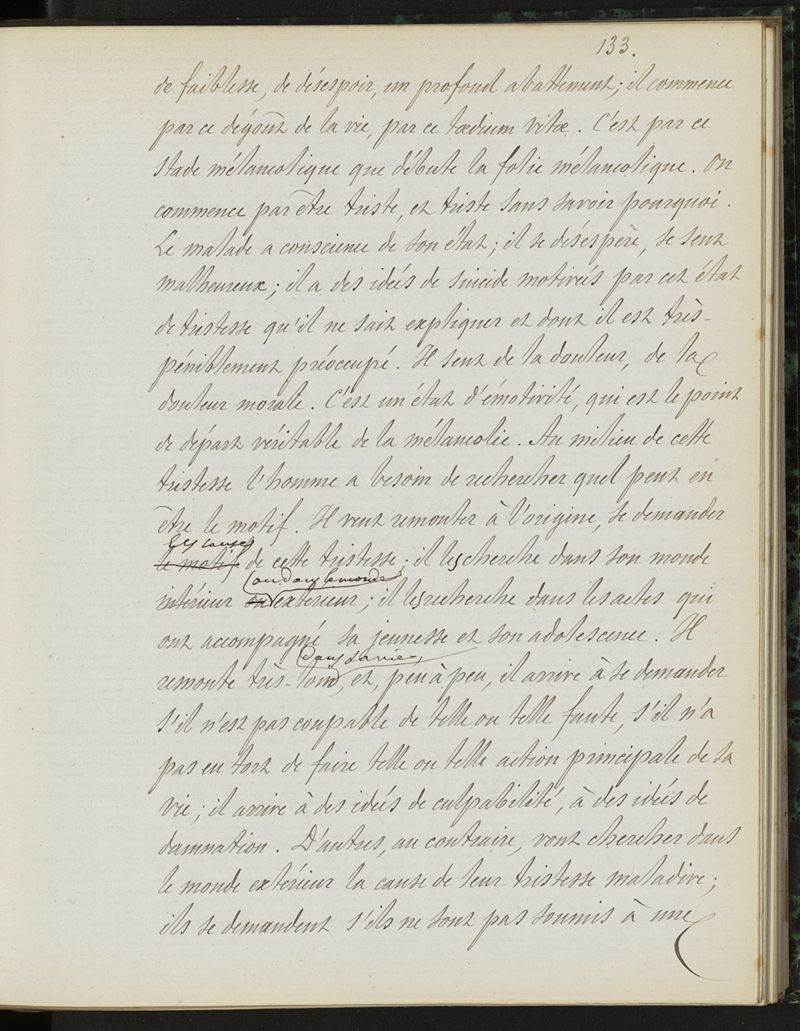 133.
de faiblesse, de désespoir, un profond abattement; il commence
par ce dégoût de la vie, par ce tædium vitæ. C'est par ce
stade mélancolique que débute la folie mélancolique. On
commence par être triste, et triste sans savoir pourquoi.
Le malade a conscience de son état; il se désespère, se sent
malheureux; il a des idées de suicide motivées par cet état
de tristesse qu'il ne sait expliquer et dont il est très-
péniblement préoccupé. Il sent de la douleur, de la
douleur morale. C'est un état d'émotivité, qui est le point
de départ véritable de la mélancolie. Au milieu de cette
tristesse l'homme a besoin de rechercher quel peut en
être le motif. Il veut remonter à l'origine, se demander
les causes
le motif de cette tristesse; il les cherche dans son monde
ou dans le monde
intérieur ou extérieur; il les recherche dans les actes qui
ont accompagné sa jeunesse et son adolescence. Il
dans sa vie,
remonte très-loin, et, peu à peu, il arrive à se demander
s'il n'est pas coupable de telle ou telle faute, s'il n'a
pas eu tort de faire telle ou telle action principale de sa
vie; il arrive à des idées de culpabilité, à des idées de
damnation. D'autres, au contraire, vont chercher dans
le monde extérieur la cause de leur tristesse maladive;
ils se demandent s'ils ne sont pas soumis à une